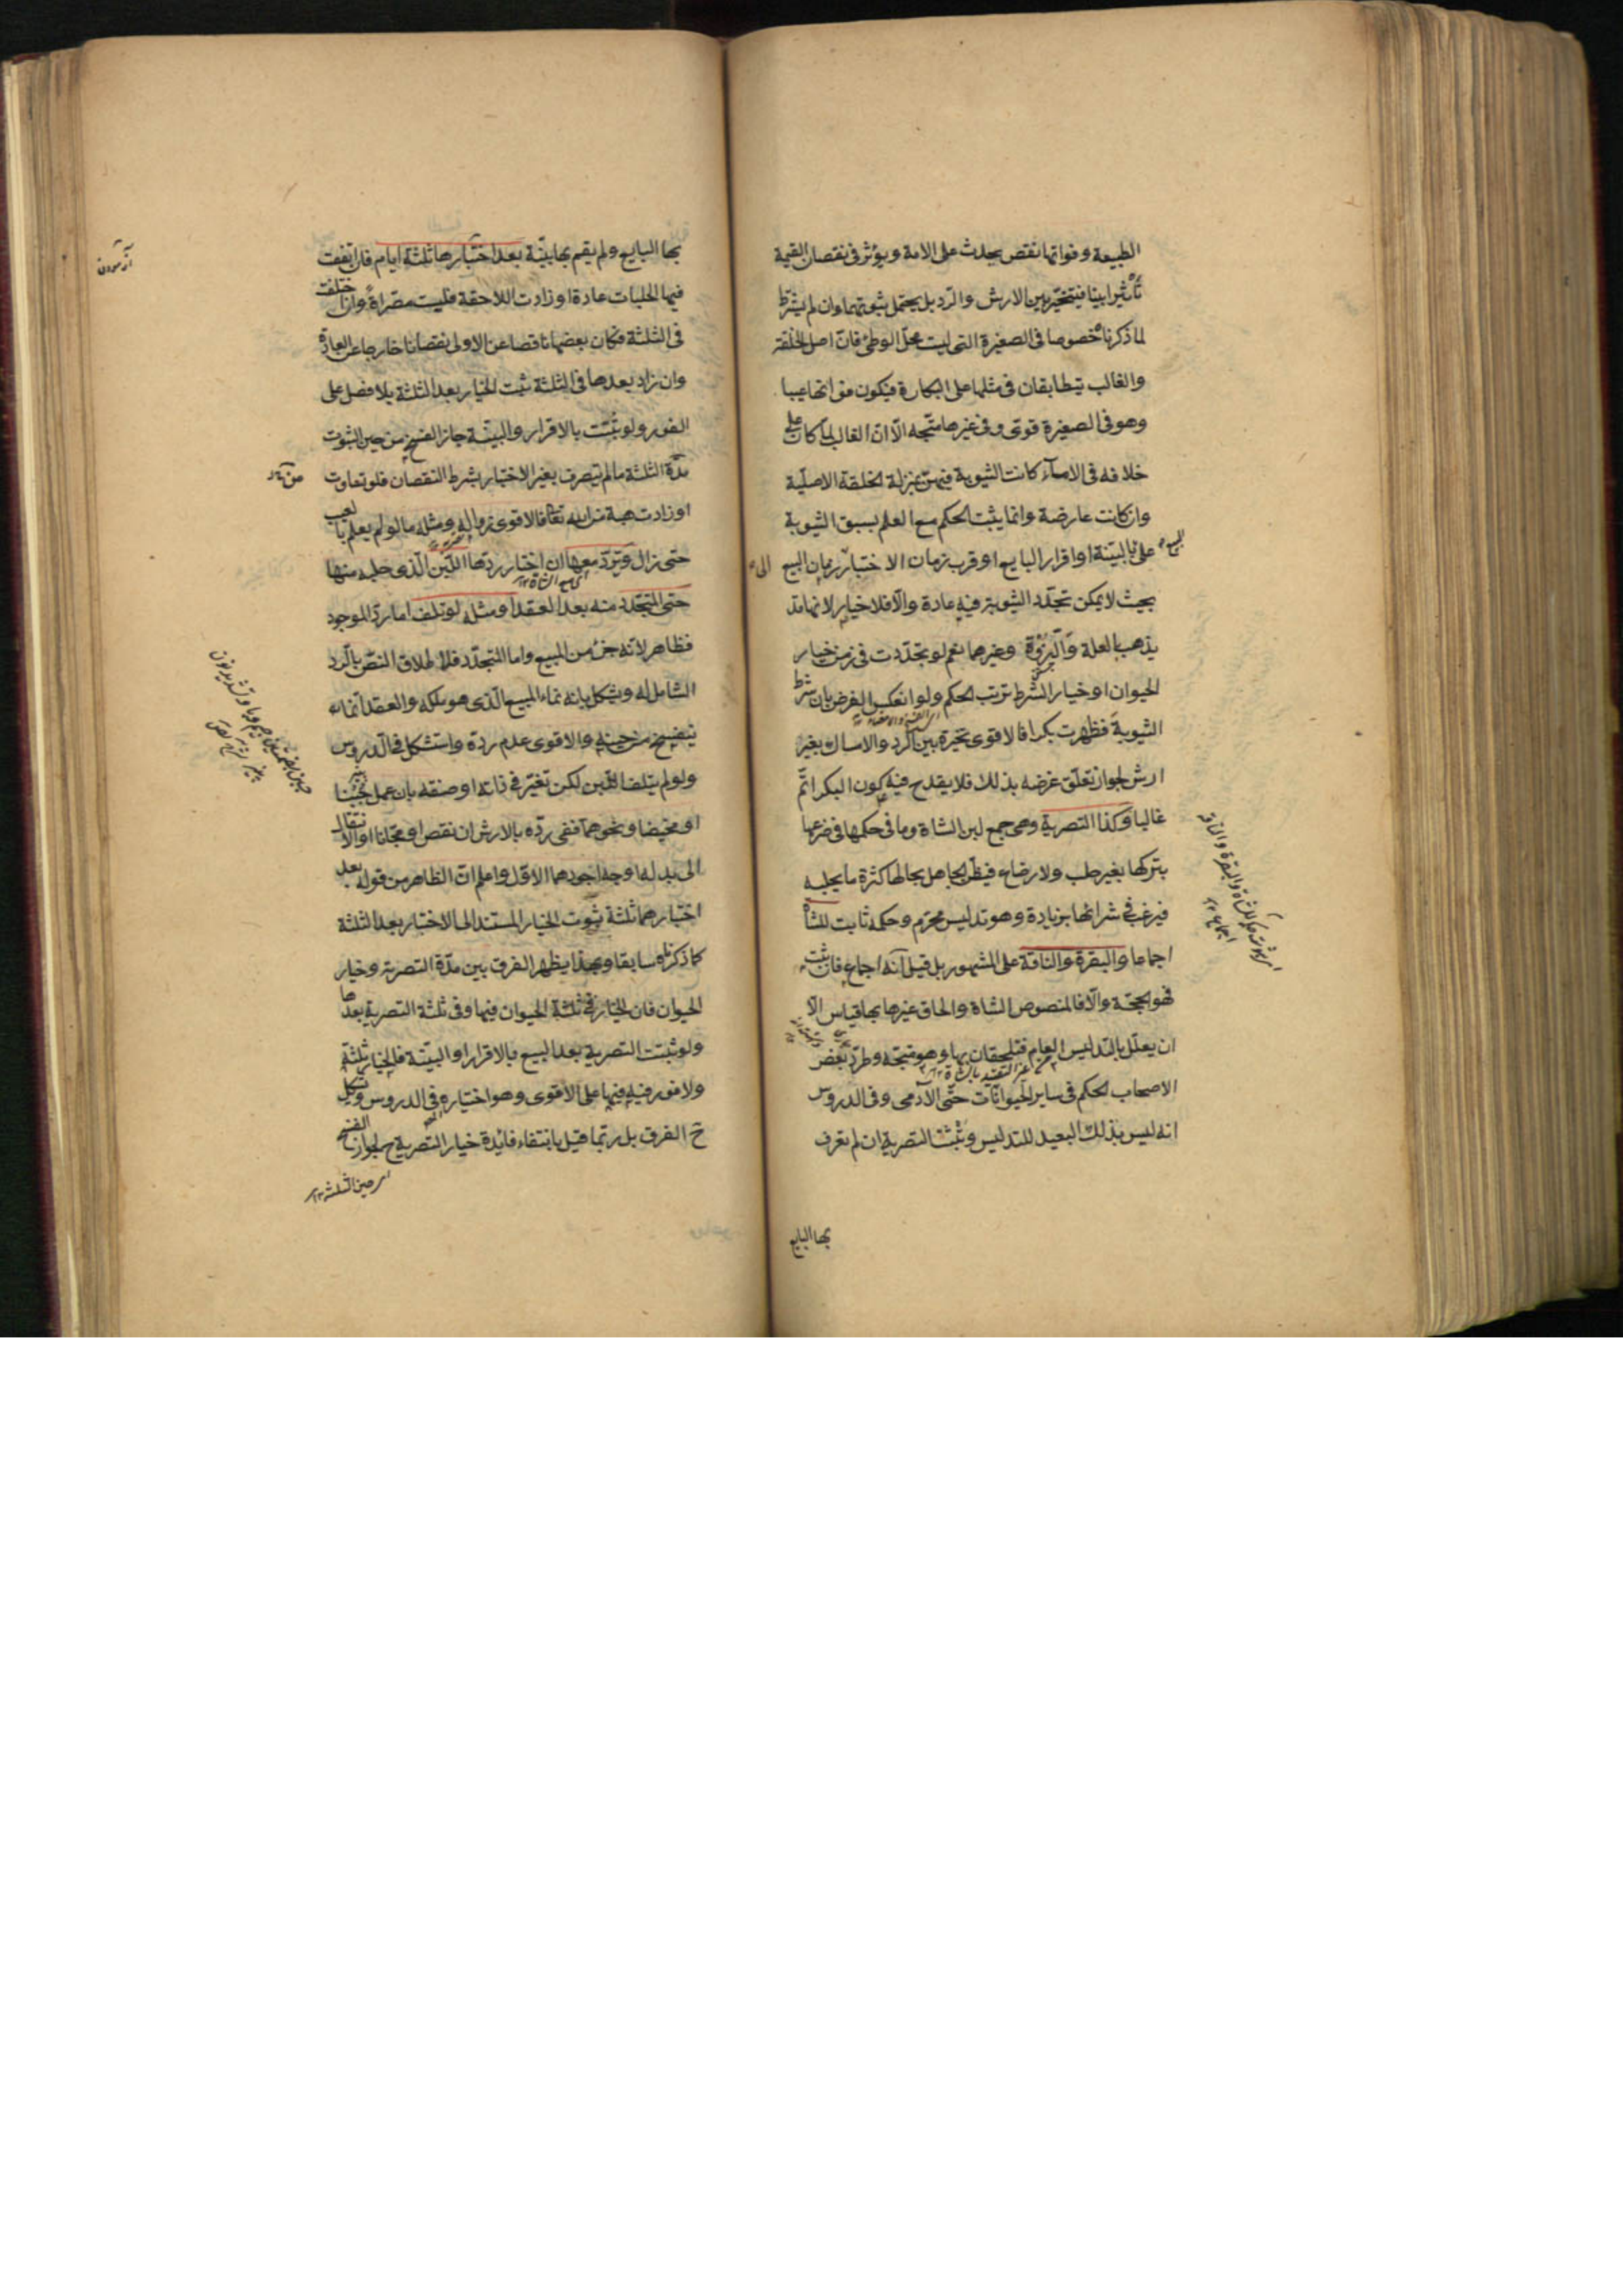 الطبيعة وفواتها نقص يحدث على الامة ويؤثر فى نقصان القيمة
تأثيرا بينا فيتخير بين الارش والرد بل يحتمل ثبوتهما وان لم يشترط
لما ذكرناه خصوصا فى الصغيرة التى ليست محل الوطئ فان اصل الخلقة
والغالب يتطابقان فى مثلها على البكارة فيكون فواتها عيبا
وهو فى الصغيرة قوى وفى غيرها متجه الا ان الغالب لما كان على
خلافه فى الاماء كانت الثيوبة فيهن بمنزلة الخلقة الاصلية
وان كانت عارضة وانما يثبت الحكم مع العلم بسبق الثيوبة
على البيع بالبينة او اقرار البايع او قرب زمان الاختبار الى زمان البيع
بحيث لا يمكن تجدد الثيوبة فيه عادة والا فلا خيار لانها قد
يذهب بالعلة والنزوة وغيرهما نعم لو تجددت فى زمن خيار
الحيوان او خيار الشرط ترتب الحكم ولو انعكس الفرض بان شرط
الثيوبة فظهرت بكرا فالاقوى تخيره بين الرد والامساك بغير
ارش لجواز تعلق غرضه بذلك فلا يقدح فيه كون البكر اتم
غالبا وكذا التصرية وهى جمع لبن الشاة وما فى حكمها فى ضرعها
بتركها بغير حلب ولا رضاع فيظن الجاهل بحالها كثرة ما يحلبه
فيرغب فى شرائها بزيادة وهو تدليس محرم وحكمه ثابت للشاة
اجماعا والبقرة والناقة على المشهور بل قيل انه اجماع فان ثبت
فهو الحجة والا فالمنصوص الشاة والحاق غيرها بها قياس الا
ان يعلل بالتدليس العام فيلحقان بها وهو متجه وطرد بعض
الاصحاب الحكم فى ساير الحيوانات حتى الآدمى وفى الدروس
انه ليس بذلك البعيد للتدليس وتثبت التصرية ان لم تعرف
بها البايع
بها البايع ولم يقم بها بينة بعد اختبارها ثلثة ايام فان اتفقت
فيها الحلبات عادة او زادت اللاحقة فليست مصراة وان اختلفت
فى الثلثة فكان بعضها ناقصا عن الاولى نقصانا خارجا عن العادة
وان زاد بعدها فى الثلثة ثبت الخيار بعد الثلثة بلا فصل على
الفور ولو ثبتت بالاقرار والبينة جاز الفسخ من حين الثبوت
مدة الثلثة ما لم يتصرف بغير الاختبار بشرط النقصان فلو تفاوت
او زادت هبة من الله تعا فالاقوى زواله ومثله ما لو لم يعلم بالعيب
حتى زال ويرد معها ان اختار ردها اللبن الذى حلبه منها
حتى المتجدد منه بعد العقد او مثله لو تلف اما رد الموجود
فظاهر لانه جزء من المبيع واما المتجدد فلاطلاق النص بالرد
الشامل له ويشكل بانه نماء المبيع الذى هو ملكه والعقد انما
ينفسخ من حينه والاقوى عدم رده واستشكل فى الدروس
ولو لم يتلف اللبن لكن تغير فى ذاته او صفته بان عمل جبنا
او مخيضا ونحوهما ففى رده بالارش ان نقص او مجانا او الانتقال
الى بدله اوجه اجودها الاول واعلم ان الظاهر من قوله بعد
اختبارها ثلثة ثبوت الخيار المستند الى الاختبار بعد الثلثة
كما ذكرناه سابقا وبهذا يظهر الفرق بين مدة التصرية وخيار
الحيوان فان الخيار فى ثلثة الحيوان فيها وفى ثلثة التصرية بعدها
ولو ثبتت التصرية بعد البيع بالاقرار او البينة فالخيار ثلثة
ولا فور فيه فيها على الاقوى وهو اختياره فى الدروس ويشكل
ح الفرق بل ربما قيل بانتفاء فائدة خيار التصرية ح لجواز الفسخ